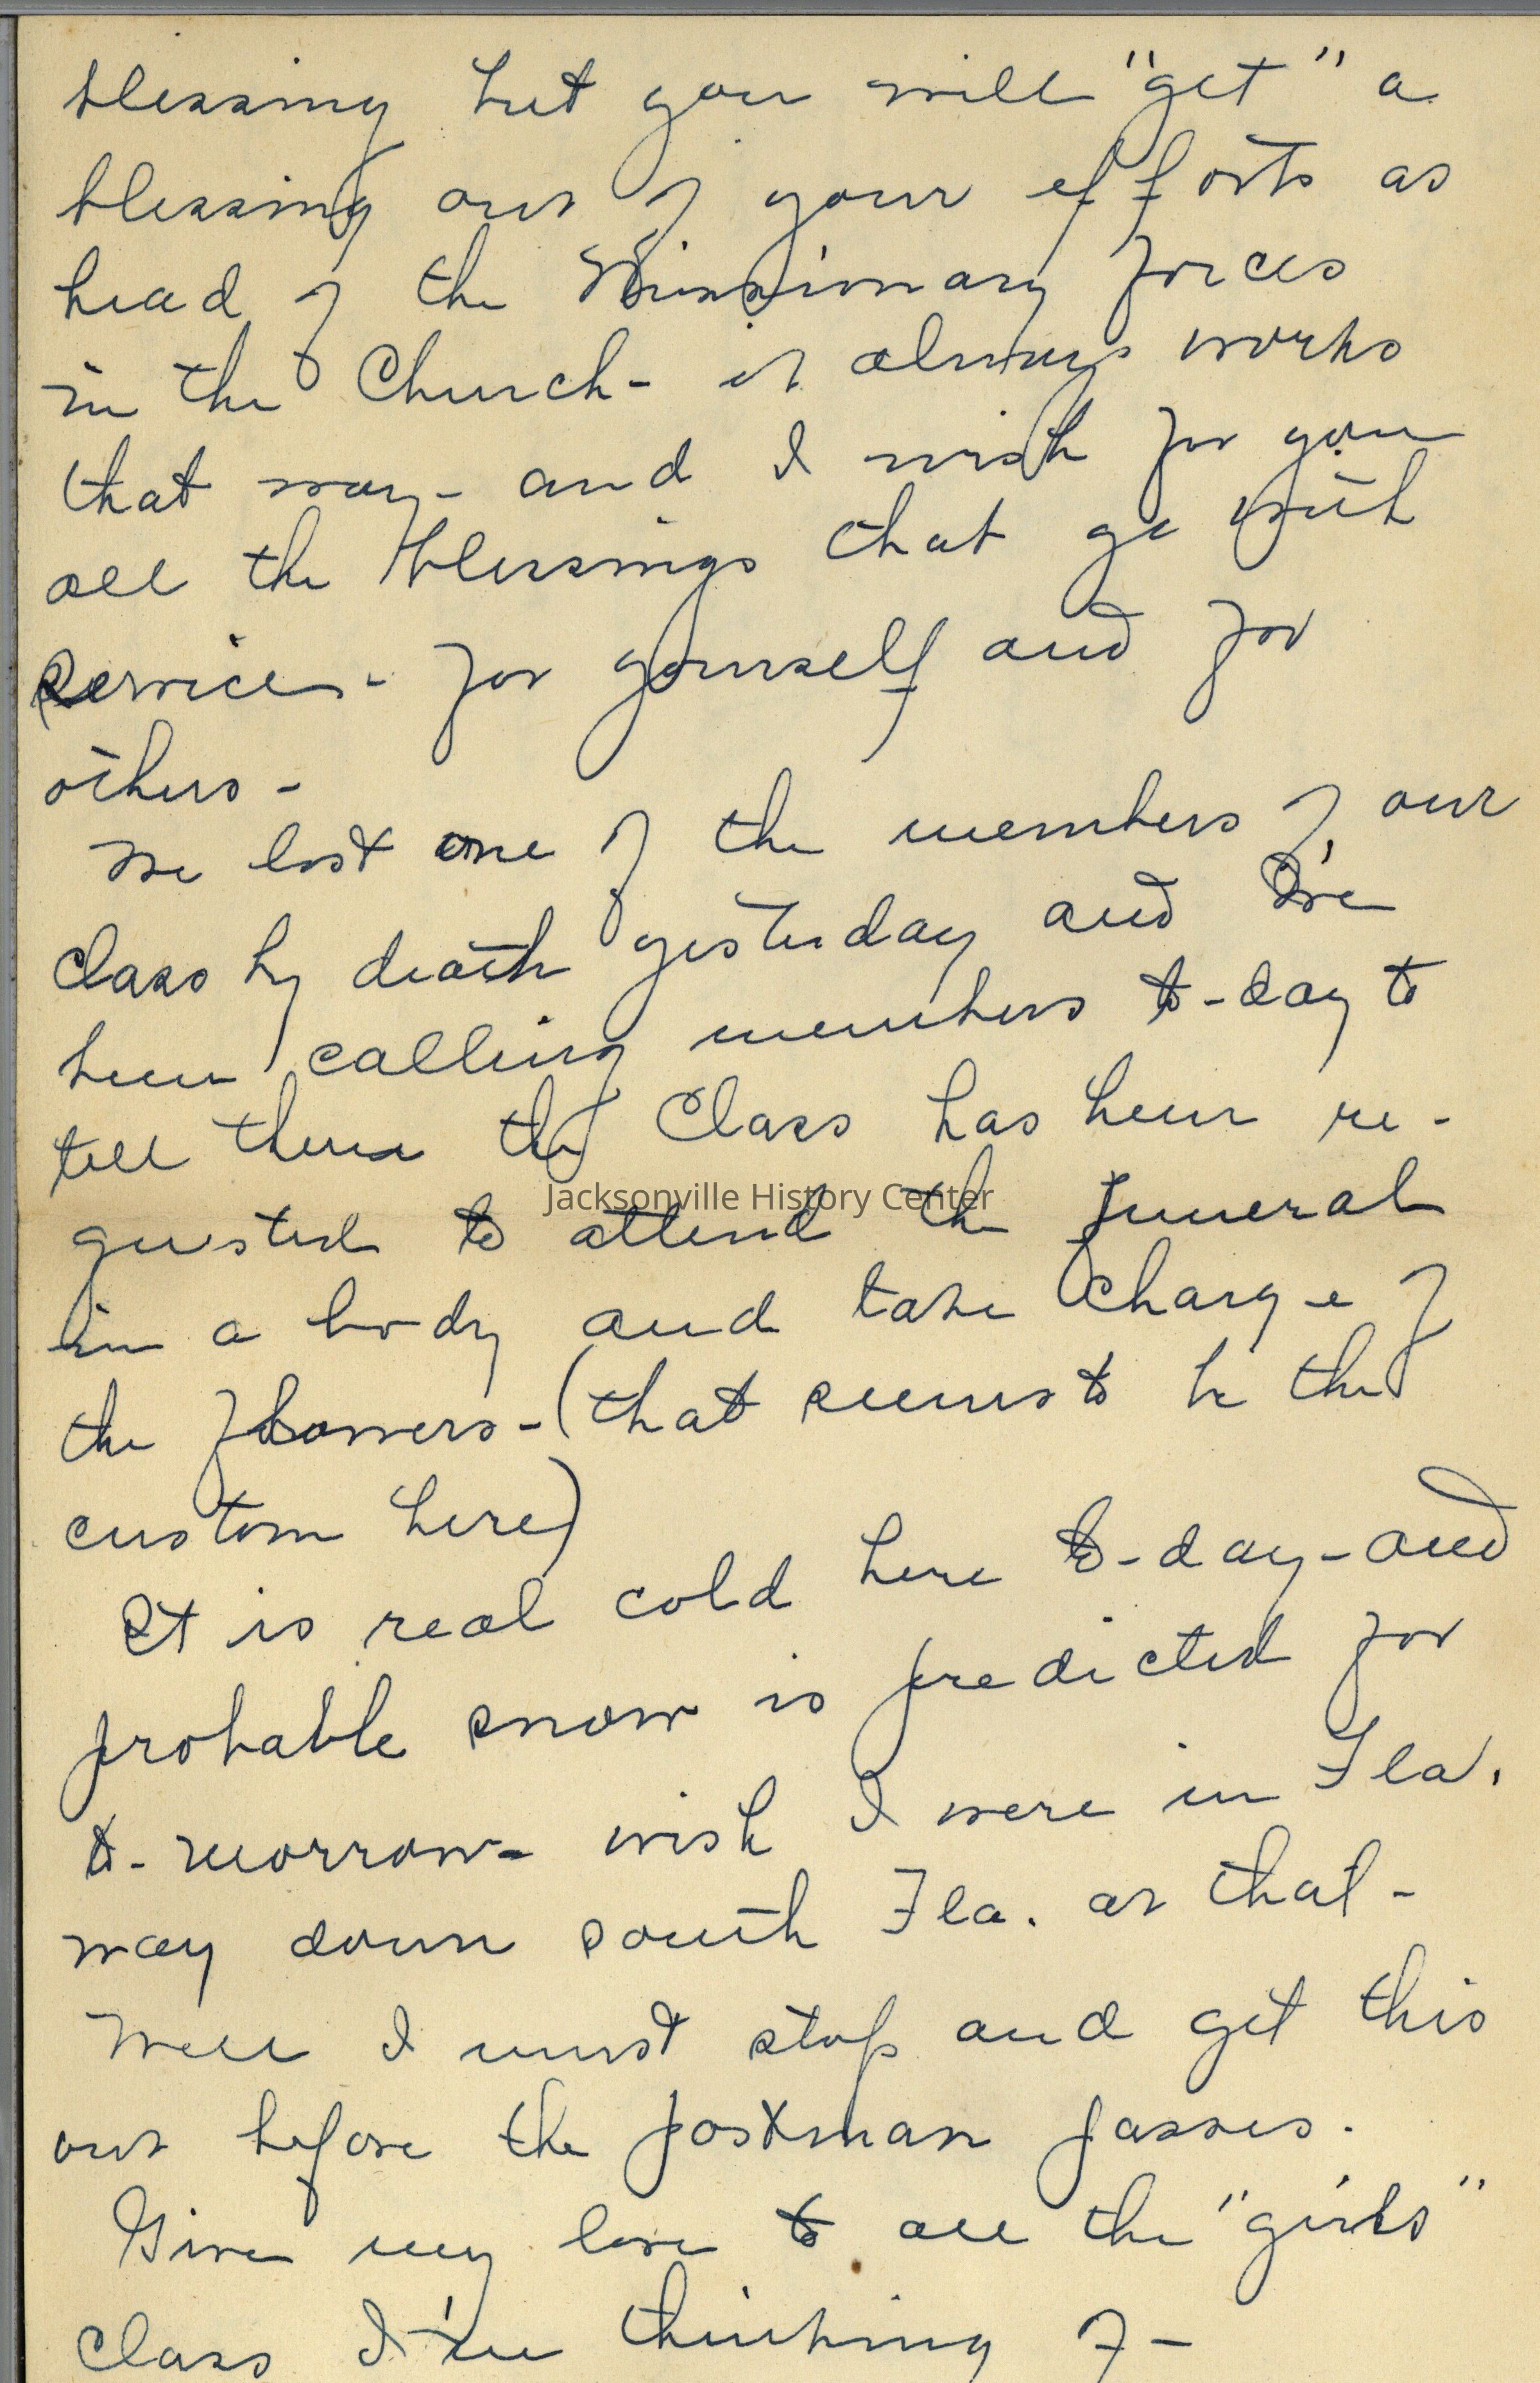 blessing but you will "get" a
blessing out of your efforts as
head of the Missionary forces
in the Church - it always works
that way - and I wish for you
all the blessings that go with
Service - for yourself and for
others -
We lost one of the members of our
Class by death yesterday and I've
been calling members to-day to
tell them the Class has been re-
quested to attend the funeral
in a body and take charge of
the flowers - (that seems to be the
custom here)
It is real cold here to-day - and
probable snow is predicted for
to-morrow - wish I were in Fla.
way down south Fla. at that -
Well I must stop and get this
out before the postman passes.
Give my love to all the "girls"
Class I'm thinking of -
Jacksonville History Center